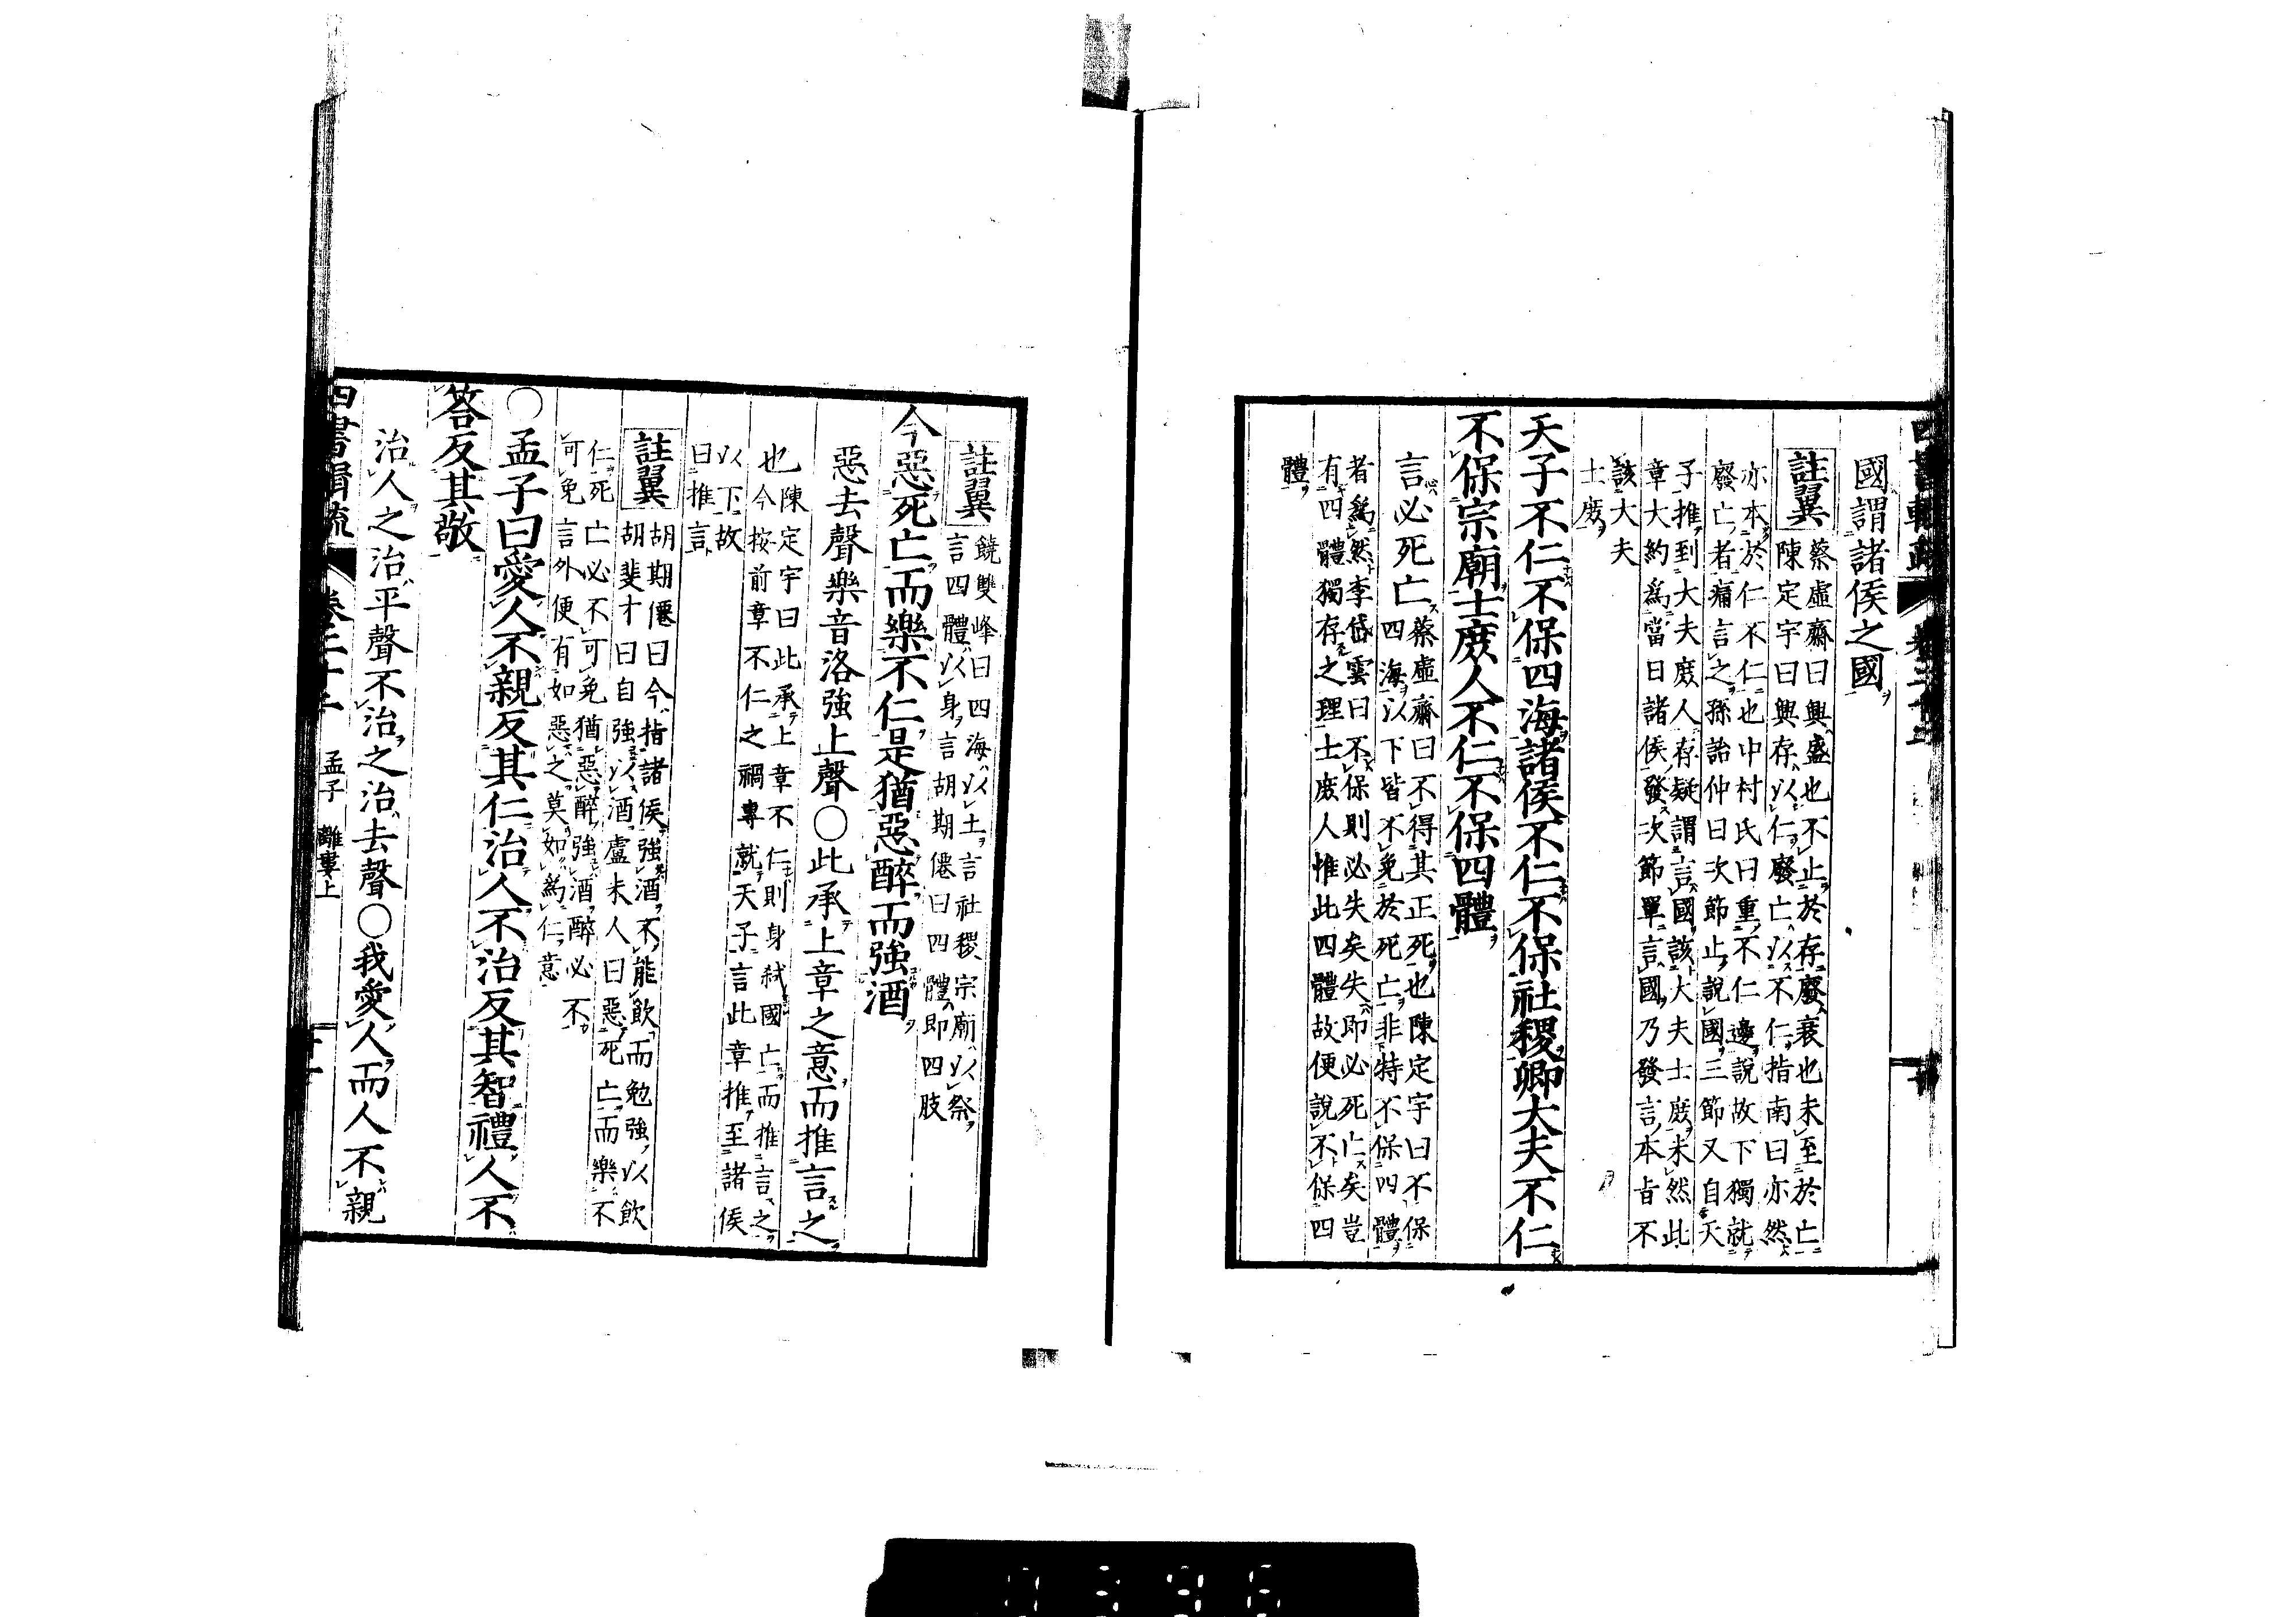 國謂諸侯之國
註翼
蔡虛齋曰興盛也不止於存廢衰也未至於亡
陳定宇曰興存以仁廢亡以不仁指南曰亦然
亦本於仁不仁也中村氏曰重不仁邊說故下獨就
廢亡者痛言之孫詒仲曰次節止說國三節又自天
子推到大夫庶人存疑謂言國該大夫士庶未然此
章大約爲當日諸侯發次節單言國乃發言本旨不
該大夫
士庶
天子不仁不保四海諸侯不仁不保社稷卿大夫不仁
不保宗廟士庶人不仁不保四體
言必死亡
蔡虛齋曰不得其正死也陳定宇曰不保
四海以下皆不免於死亡非特不保四體
者爲然李岱雲曰不保則必失矣失即必死亡矣豈
有四體獨存之理士庶人惟此四體故便說不保四
體
註翼
饒雙峰曰四海以土言社稷宗廟以祭
言四體以身言胡期僊曰四體即四肢
今惡死亡而樂不仁是猶惡醉而強酒
惡去聲樂音洛強上聲〇此承上章之意而推言之
也
陳定宇曰此承上章不仁則身弒國亡而推言之
今按前章不仁之禍專就天子言此章推至諸侯
以下故
曰推言
註翼
胡期僊曰今指諸侯強酒不能飲而勉強以飲
胡斐才曰自強以酒盧未人曰惡死亡而樂不
仁死亡必不可免猶惡醉強酒醉必不
可免言外便有如惡之莫如爲仁意
〇孟子曰愛人不親反其仁治人不治反其智禮人不
答反其敬
治人之治平聲不治之治去聲〇我愛人而人不親
四書輯疏
孟子 離婁上